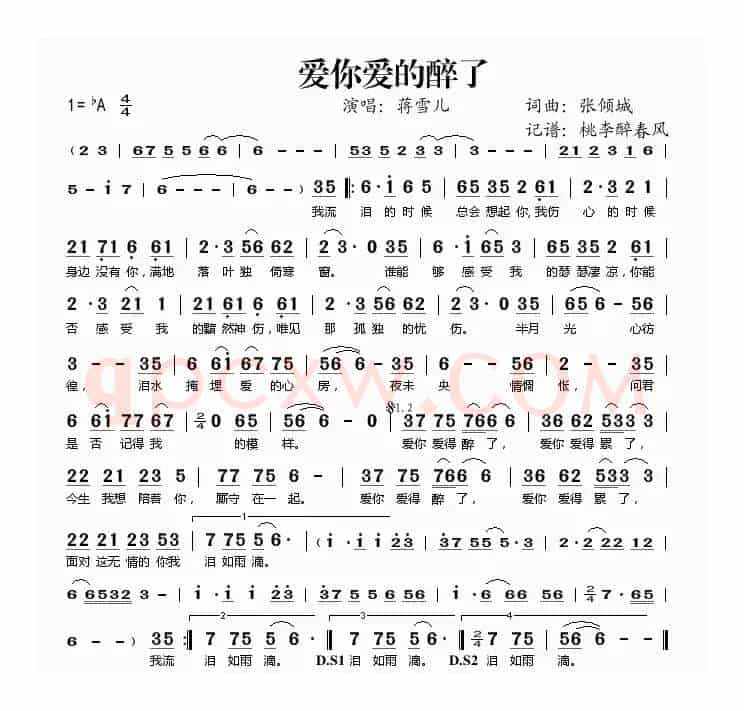 爱你爱的醉了
1=♭A 4/4 演唱：蒋雪儿 词曲：张倾城
记谱：桃李醉春风
(2 3 | 67 5 5 66 | 6 - - - | 53 5 2 3 3 | 3 - - - | 21 2 3 1 6 |
5 - i 7 | 6 - - - | 6 - - -) | 35 ‖: 6· i 6 5 | 65 35 2 61 | 2·3 2 1 |
我流 泪的时候 总会想起你,我伤 心的时候
21 71 6 61 | 2·3 56 62 | 2 3·0 35 | 6·i 65 3 | 5 35 21 61 |
身边没有你,满地 落叶独倚寒 窗。 谁能 够感受我 的瑟瑟凄凉,你能
2·3 21 1 | 21 61 6 61 | 2·3 56 62 | 3 - ·0 35 | 65 6 - 56 |
否感受我 的黯然神伤,唯见 那孤独的忧 伤。 半月 光 心彷
3 - - 35 | 6 6i 67 75 | 56 6 - 35 | 6 - - 56 | 2 - - 35 |
徨， 泪水 掩埋爱的心 房， 夜未 央 情惆 怅， 问君
6 6i 77 67 | 2/4 0 65 | 56 6 - 0 | 37 75 766 6 | 36 62 533 3 |
是否记得我 的模 样。 爱你爱得醉了， 爱你爱得累了，
22 21 23 5 | 77 75 6 - | 37 75 766 6 | 36 62 533 3 |
今生我想陪着你， 厮守在一起。 爱你爱得醉了， 爱你爱得累了，
22 21 23 53 | 7 75 5 6· | (i· i i 23 | 37 55 5·3 | 2· 2 2 12 |
面对这无情的你我 泪如雨滴。
6 6532 3 - | i· i 2 23 | 37 5 5 6 3 | 5· 5 65 56 | 2/4 7·65 |
6 - - ) 35 :‖ 7 75 5 6· :‖ 7 75 5 6· :‖ 2/4 7 75 | 56 6 - - ‖
我流 泪如雨滴。 D.S1 泪如雨滴。 D.S2 泪如雨滴。